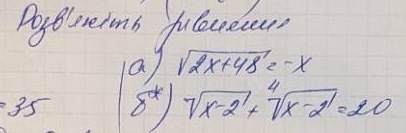 Розв'яжіть рівнення
а) √2x+48 = -x
= 35
б*) √x-2 + ⁴√x-2 = 20